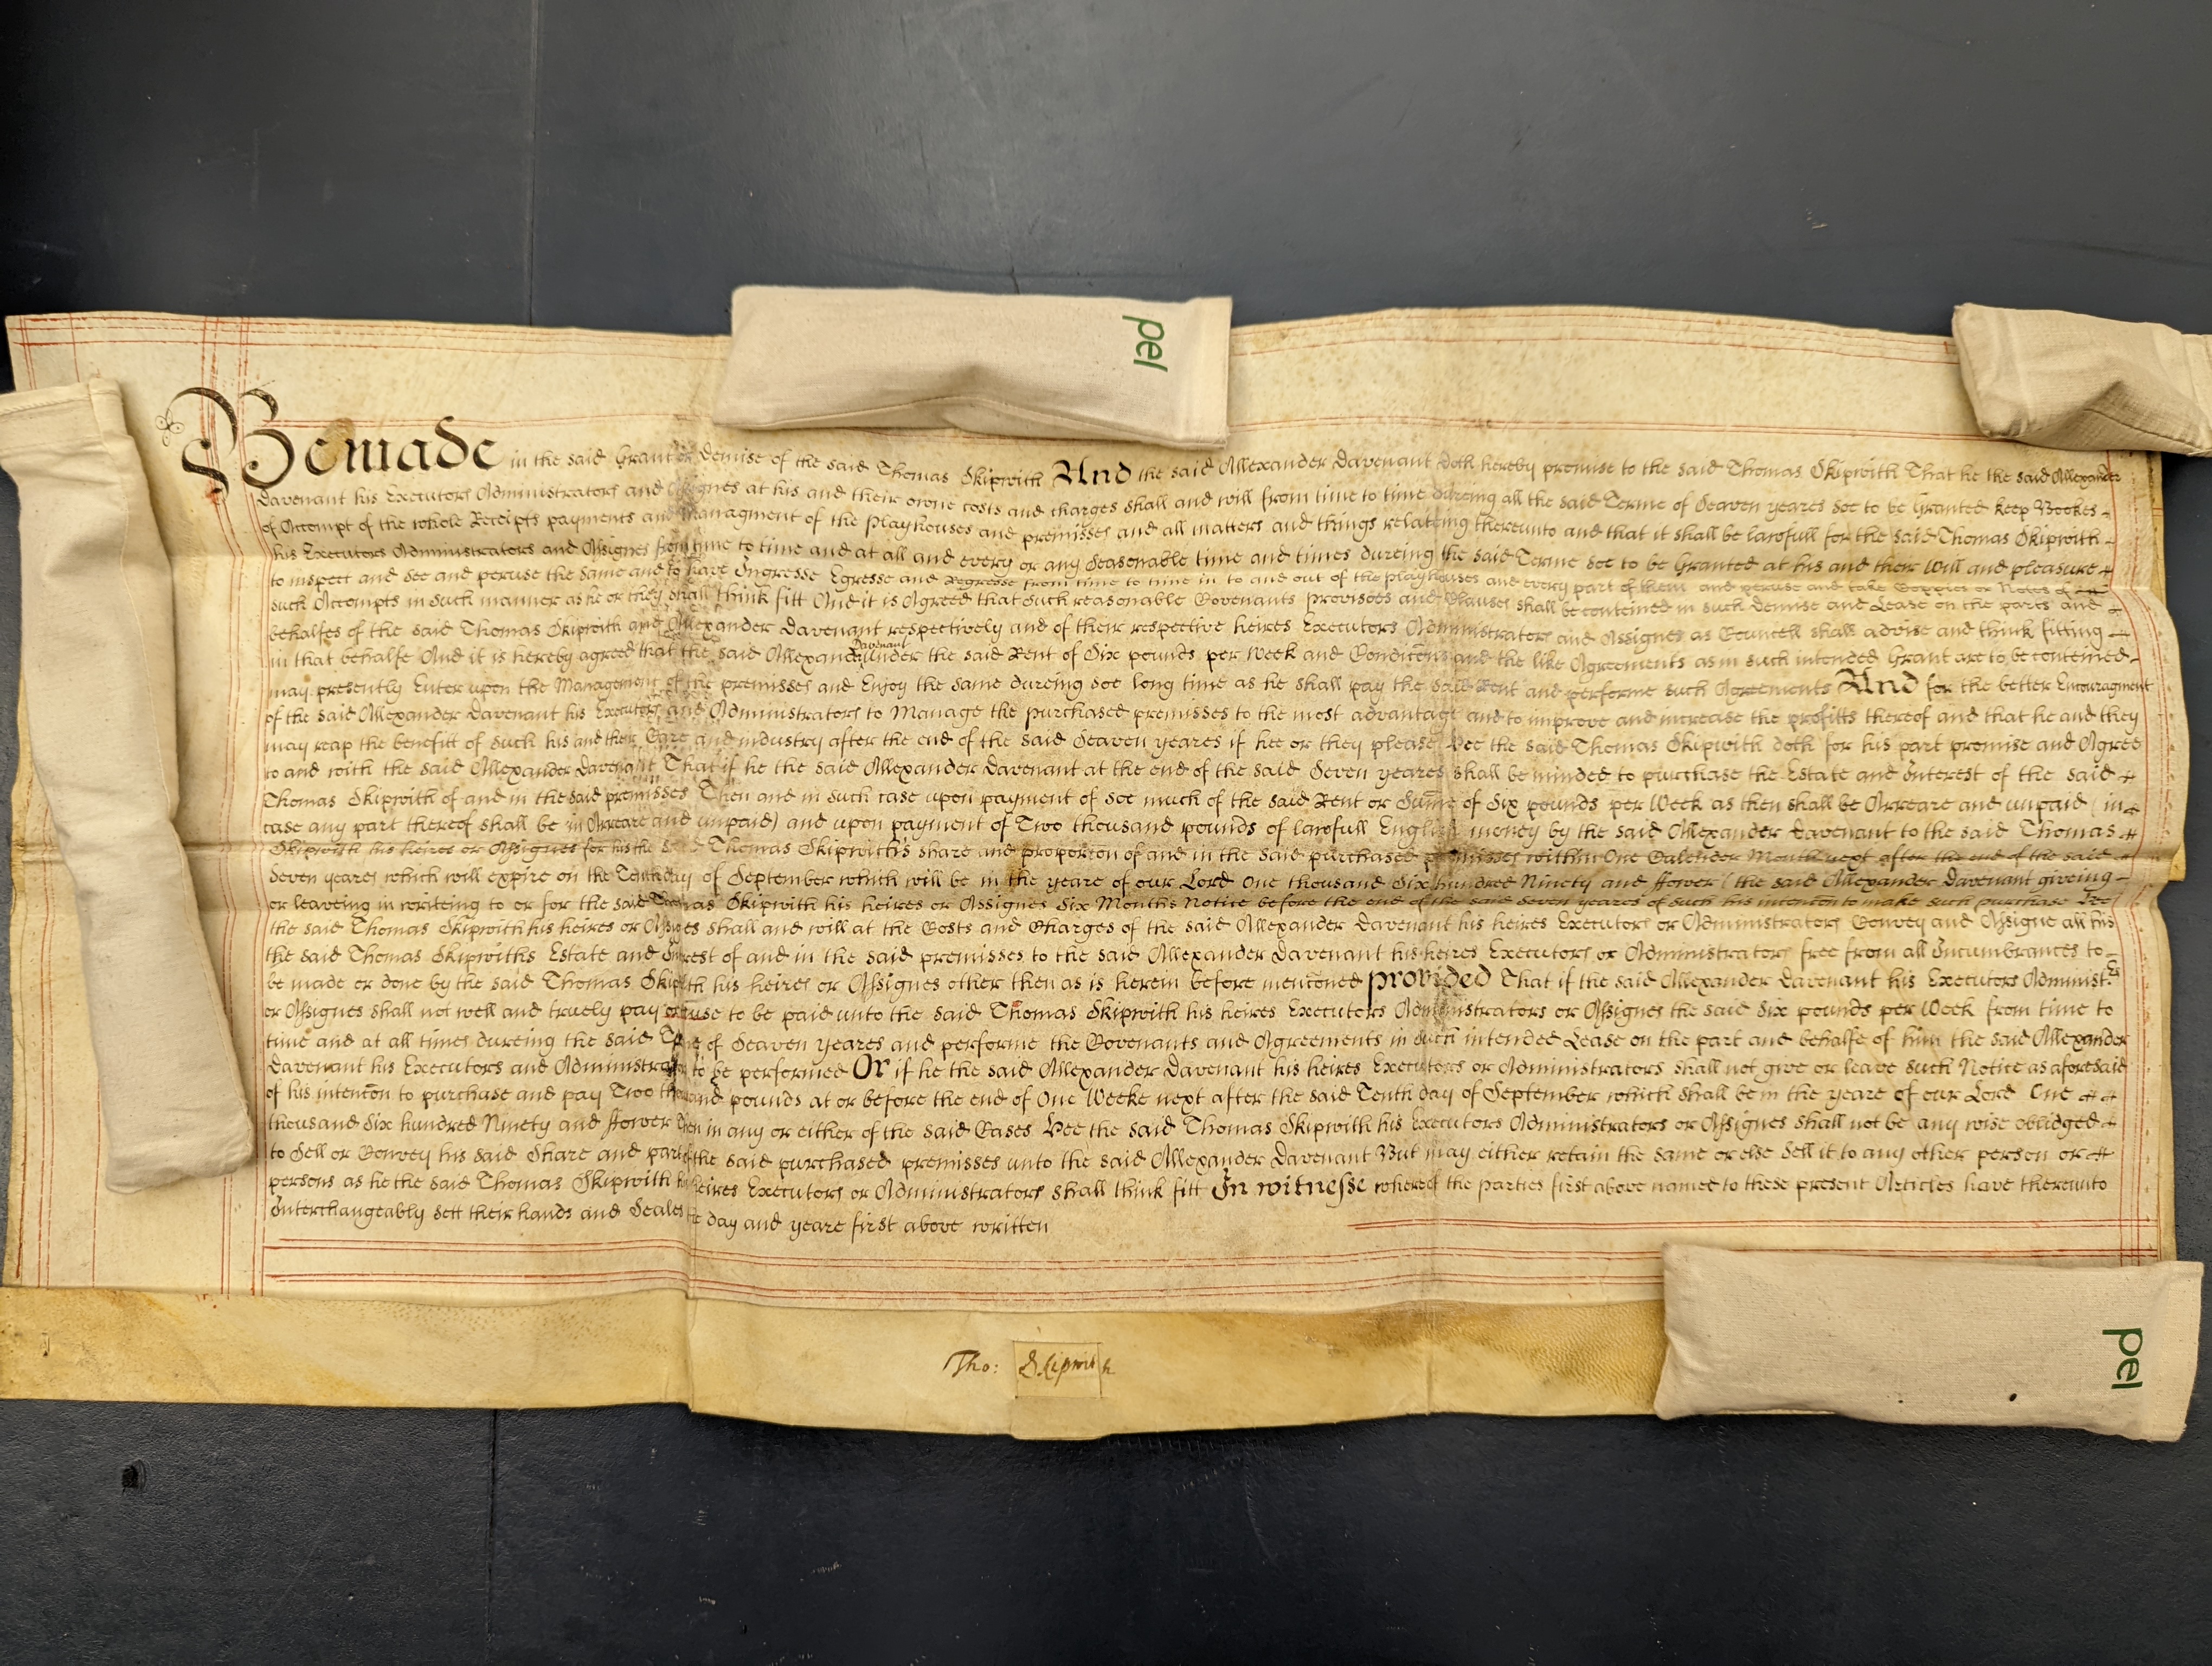 Be made in the said Grant or Demise of the said Thomas Skipwith And the said Allexander Davenant doth hereby promise to the said Thomas Skipwith That he the said Allexander
Davenant his Executors Administrators and Assignes at his and their owne costs and charges shall and will from time to time dureing all the said Terme of Seaven yeares soe to be Granted keep Bookes
of Accompt of the whole Receipts payments and managment of the Playhouses and premisses and all matters and things relateing thereunto and that it shall be lawfull for the said Thomas Skipwith
his Executors Administrators and Assignes from time to time and at all and every or any Seasonable time and times dureing the said Terme soe to be Granted at his and their Will and pleasure
to inspect and see and peruse the same and to have Ingresse Egresse and Regresse from time to time in to and out of the playhouses and every part of them and peruse and take Coppies or Notes of
such Accompts in such manner as he or they shall think fitt And it is Agreed that such reasonable Covenants provisoes and Clauses shall be conteined in such Demise and Lease on the parts and
behalfes of the said Thomas Skipwith and Allexander Davenant respectively and of their respective heires Executors Administrators and Assignes as Councell shall advise and think fitting
in that behalfe And it is hereby agreed that the said Allexander Davenant under the said Rent of Six pounds per Week and Condicõns and the like Agreements as in such intended Grant are to be conteined
may presently Enter upon the Management of the premisses and Enjoy the same dureing soe long time as he shall pay the said Rent and performe such Agreements And for the better Encouragment
of the said Allexander Davenant his Executors and Administrators to Manage the purchased premisses to the most advantage and to improve and increase the profitts thereof and that he and they
may reap the benefitt of such his and their Care and industry after the end of the said Seaven yeares if hee or they please Hee the said Thomas Skipwith doth for his part promise and Agree
to and with the said Allexander Davenant That if he the said Allexander Davenant at the end of the said Seven yeares shall be minded to purchase the Estate and Interest of the said
Thomas Skipwith of and in the said premisses Then and in such case upon payment of soe much of the said Rent or Sum̃e of Six pounds per Week as then shall be Arreare and unpaid (in
case any part thereof shall be in Arreare and unpaid) and upon payment of Two thousand pounds of lawfull English money by the said Allexander Davenant to the said Thomas
Skipwith his heires or Assignes for his the said Thomas Skipwith's share and proporcõn of and in the said purchased premisses within One Calender Month next after the end of the said
Seven yeares which will expire on the Tenth day of September which will be in the yeare of our Lord One thousand Six hundred Ninety and ffower (the said Allexander Davenant giveing
or leaveing in writeing to or for the said Thomas Skipwith his heires or Assignes Six Months Notice before the end of the said seven yeares of such his intencõn to make such purchase Hee
the said Thomas Skipwith his heires or Assignes shall and will at the Costs and Charges of the said Allexander Davenant his heires Executors or Administrators Convey and Assigne all his
the said Thomas Skipwiths Estate and Interest of and in the said premisses to the said Allexander Davenant his heires Executors or Administrators free from all Incumbrances to
be made or done by the said Thomas Skipwith his heires or Assignes other then as is herein before mencõned provided That if the said Allexander Davenant his Executors Administ.rs
or Assignes shall not well and truely pay or cause to be paid unto the said Thomas Skipwith his heires Executors Administrators or Assignes the said Six pounds per Week from time to
time and at all times dureing the said Terme of Seaven yeares and performe the Covenants and Agreements in such intended Lease on the part and behalfe of him the said Allexander
Davenant his Executors and Administrators to be performed Or if he the said Allexander Davenant his heires Executors or Administrators shall not give or leave such Notice as aforesaid
of his intencõn to purchase and pay Two thousand pounds at or before the end of One Weeke next after the said Tenth day of September which shall be in the yeare of our Lord One
thousand Six hundred Ninety and ffower Then in any or either of the said Cases Hee the said Thomas Skipwith his Executors Administrators or Assignes shall not be any wise oblidged
to Sell or Convey his said Share and part of the said purchased premisses unto the said Allexander Davenant But may either retain the same or else Sell it to any other person or
persons as he the said Thomas Skipwith his heires Executors or Administrators shall think fitt In witnesse whereof the parties first above named to these present Articles have thereunto
Interchangeably sett their hands and Seales the day and yeare first above written
Tho: Skipwith
pel
pel